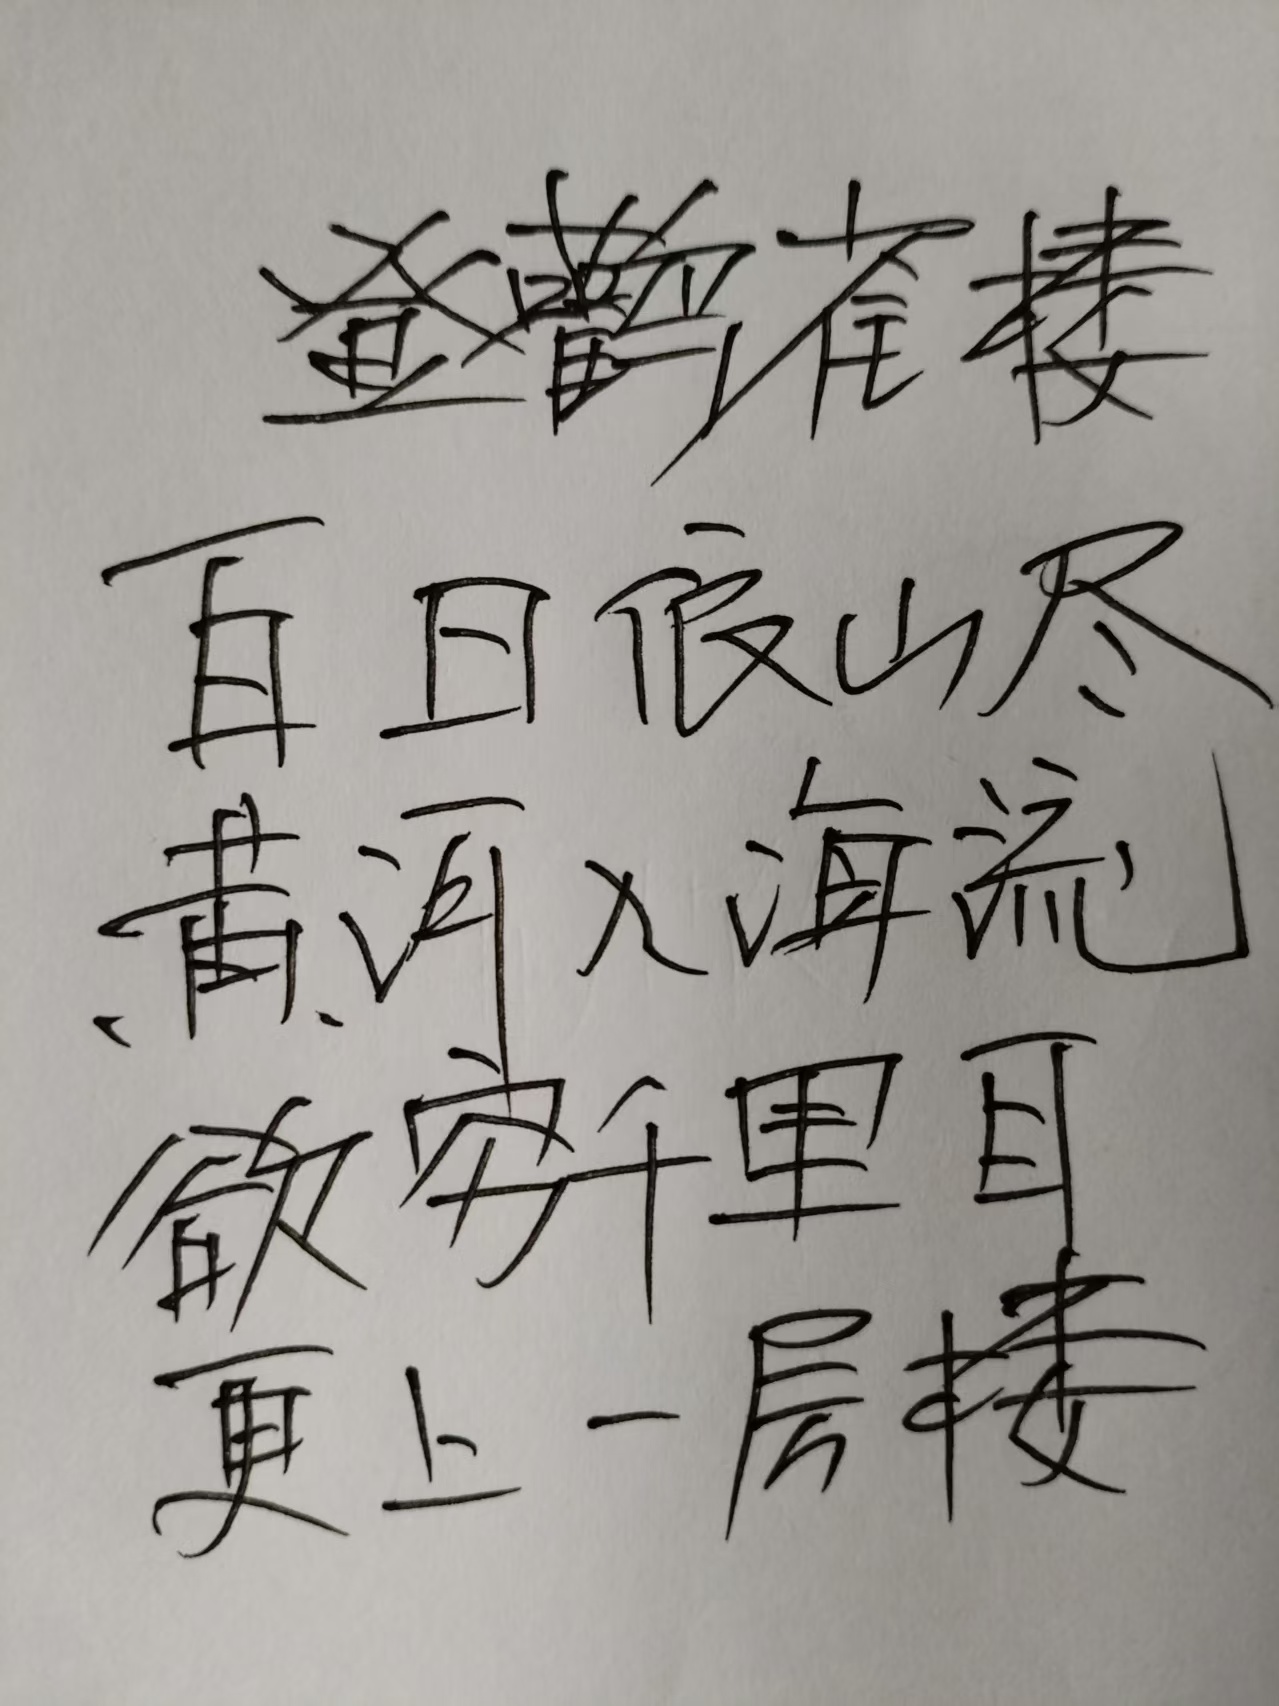 登鹳雀楼
百日依山尽
黄河入海流
欲穷千里耳
更上一层楼